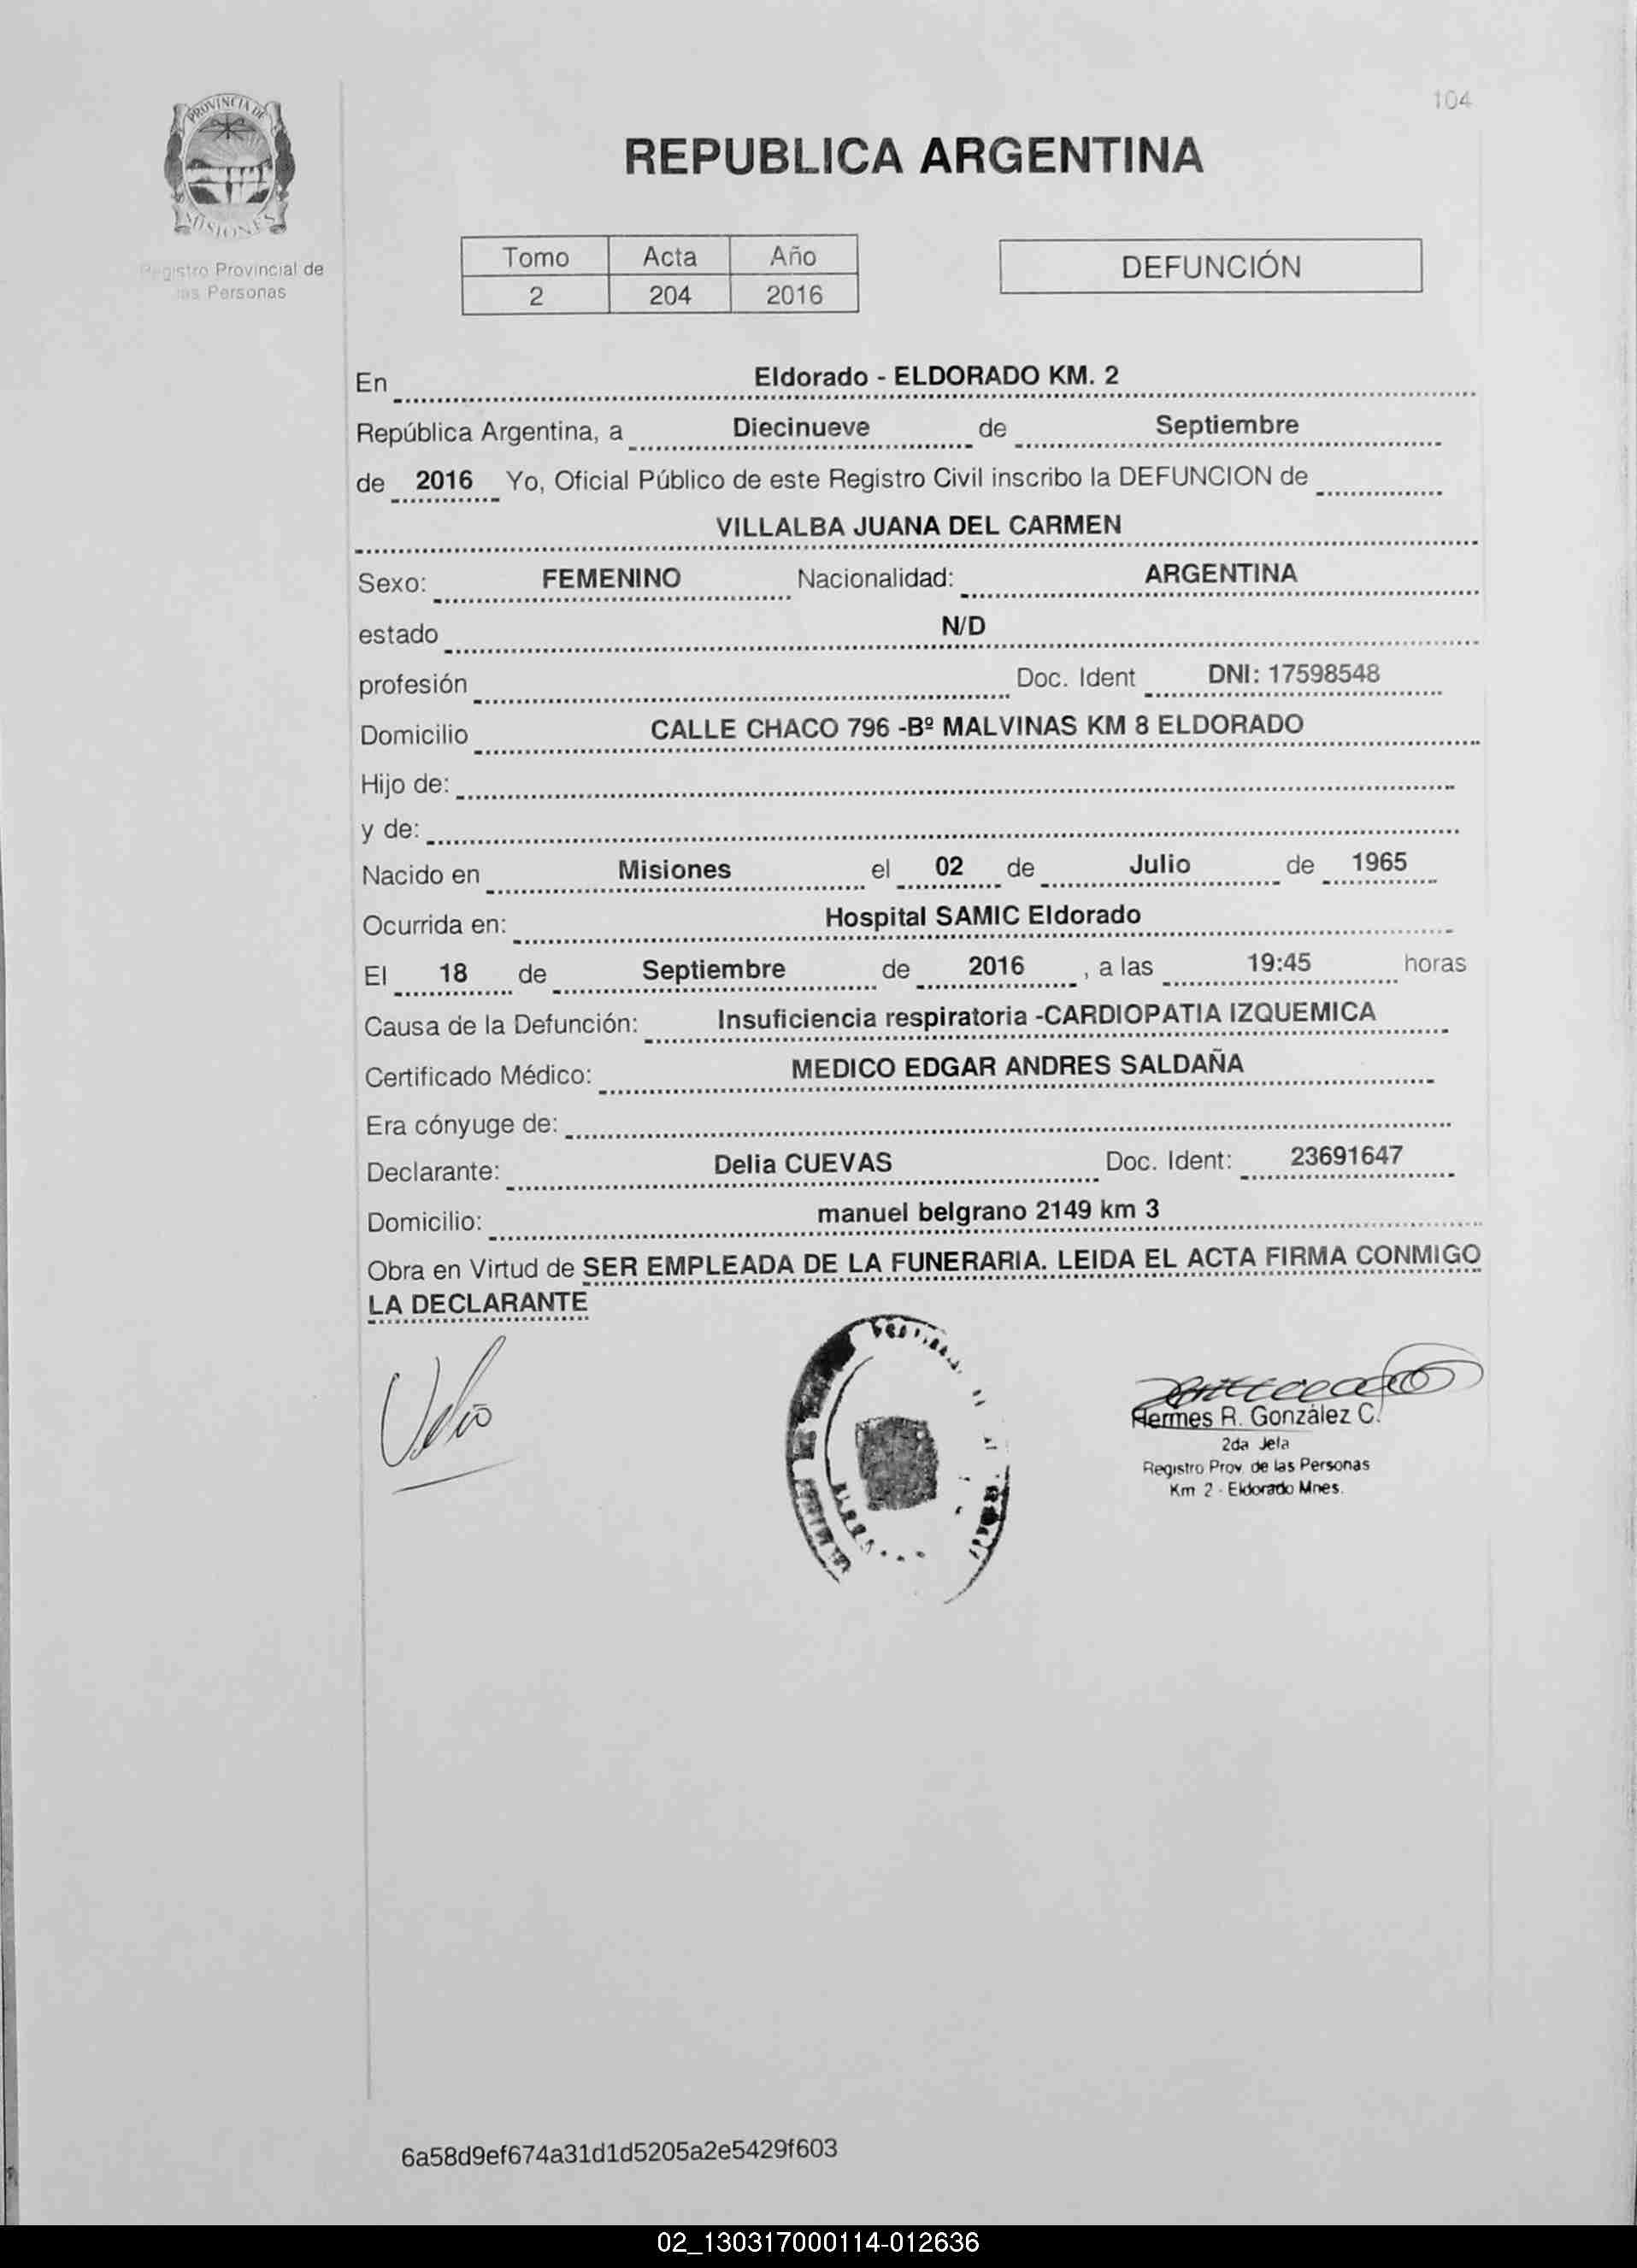 104
PROVINCIA DE
MISIONES
Registro Provincial de
las Personas
REPUBLICA ARGENTINA
Tomo Acta Año
2 204 2016
DEFUNCIÓN
En Eldorado - ELDORADO KM. 2
República Argentina, a Diecinueve de Septiembre
de 2016 Yo, Oficial Público de este Registro Civil inscribo la DEFUNCION de
VILLALBA JUANA DEL CARMEN
Sexo: FEMENINO Nacionalidad: ARGENTINA
estado N/D
profesión Doc. Ident DNI: 17598548
Domicilio CALLE CHACO 796 -Bº MALVINAS KM 8 ELDORADO
Hijo de:
y de:
Nacido en Misiones el 02 de Julio de 1965
Ocurrida en: Hospital SAMIC Eldorado
El 18 de Septiembre de 2016 , a las 19:45 horas
Causa de la Defunción: Insuficiencia respiratoria -CARDIOPATIA IZQUEMICA
Certificado Médico: MEDICO EDGAR ANDRES SALDAÑA
Era cónyuge de:
Declarante: Delia CUEVAS Doc. Ident: 23691647
Domicilio: manuel belgrano 2149 km 3
Obra en Virtud de SER EMPLEADA DE LA FUNERARIA. LEIDA EL ACTA FIRMA CONMIGO
LA DECLARANTE
Hermes R. González C.
2da Jefa
Registro Prov. de las Personas
Km 2 - Eldorado Mnes.
6a58d9ef674a31d1d5205a2e5429f603
02_130317000114-012636